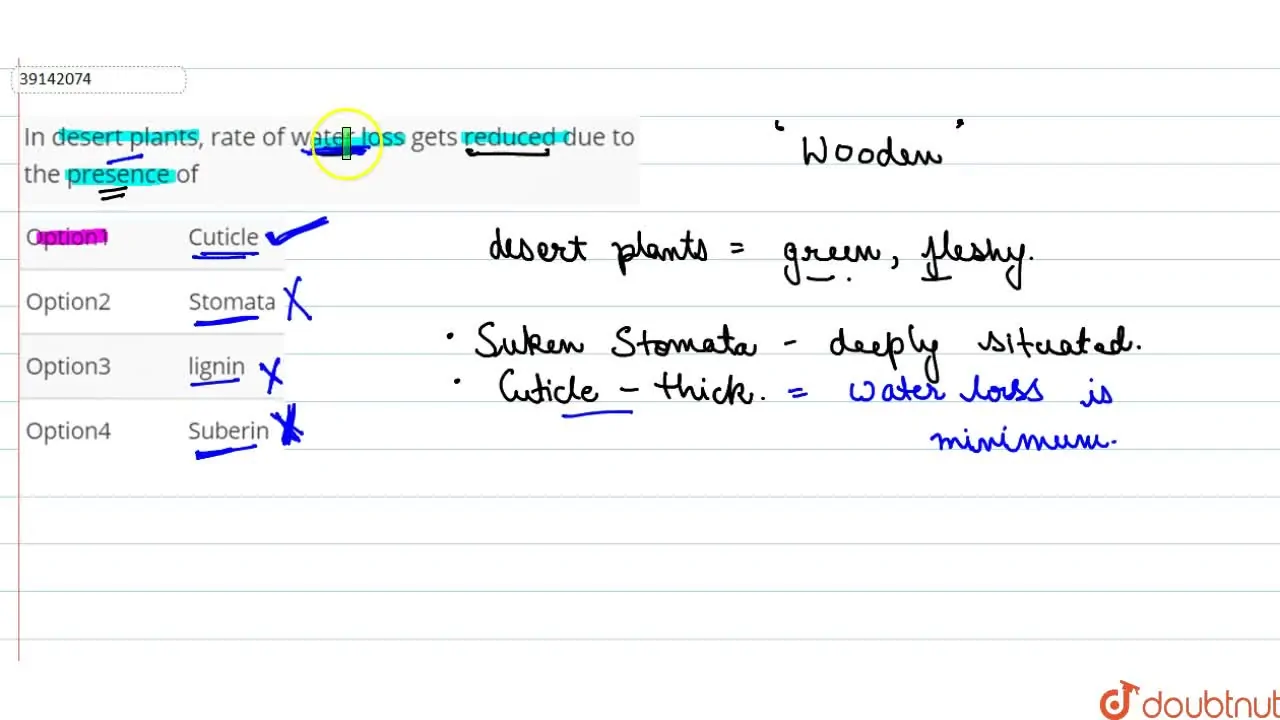 39142074
In desert plants, rate of water loss gets reduced due to
the presence of
Option1 Cuticle
Option2 Stomata
Option3 lignin
Option4 Suberin
' Wooden '
desert plants = green, fleshy.
· Suken Stomata - deeply situated.
· Cuticle - thick. = water loss is
minimum.
doubtnut